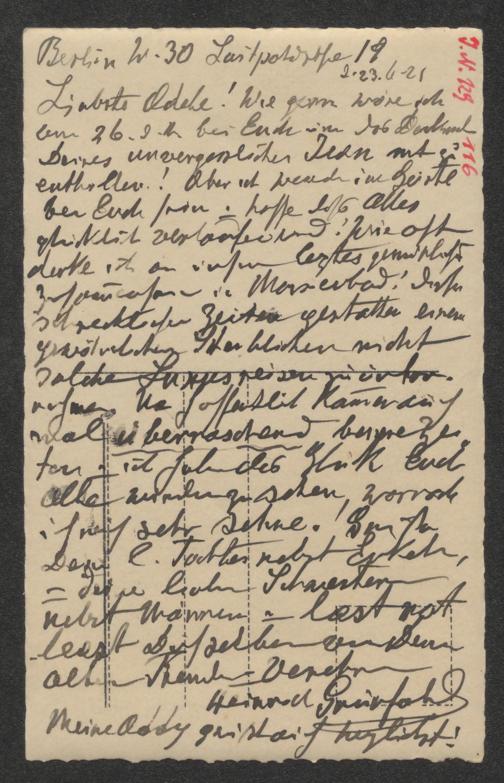 Berlin W. 30 Landshuterstraße 19
23.6.21
Liebste Adele! Wie gern wäre ich
am 26. d. M. bei Euch um das Denkmal
Deines unvergesslichen Jean mit zu
enthüllen! Aber ich werde im Geiste
bei Euch sein u. hoffe daß Alles
glücklich verlaufen wird! Wie oft
denke ich an unser letztes gemütliches
Zusammensein in Marienbad! Diese
schrecklichen Zeiten gestatten einem
gewöhnlichen Sterblichen nicht
solche Luxusreisen zu
nehmen. Na hoffentlich kann man
mal überraschend bessre Zei
ten u. ich habe das Glück Euch
Alle wiederzusehen, wonach
ich mich sehr sehne!
Deine l. Tochter nebst Enkeln,
deine lieben Schwestern
nebst Männern u. last not
least Dich selben von Deinem
alten Freunde u. Verehrer
Heinrich Grünfeld
Meine Addy grüßt Dich herzlichst!
J.N. 129
116